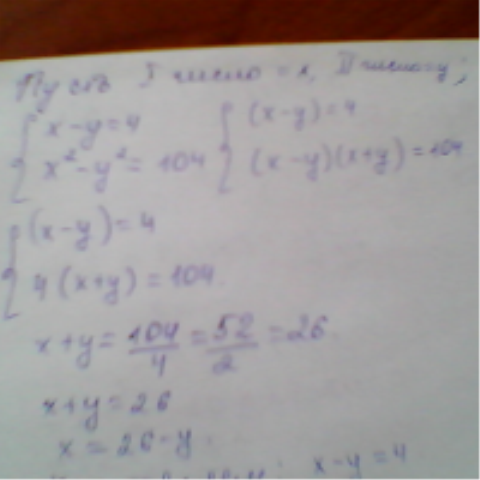 Пусть I число = x, II число = y;
{ x - y = 4 { (x - y) = 4
x² - y² = 104 (x - y)(x + y) = 104
{ (x - y) = 4
4 (x + y) = 104
x + y = 104/4 = 52/2 = 26
x + y = 26
x = 26 - y
x - y = 4